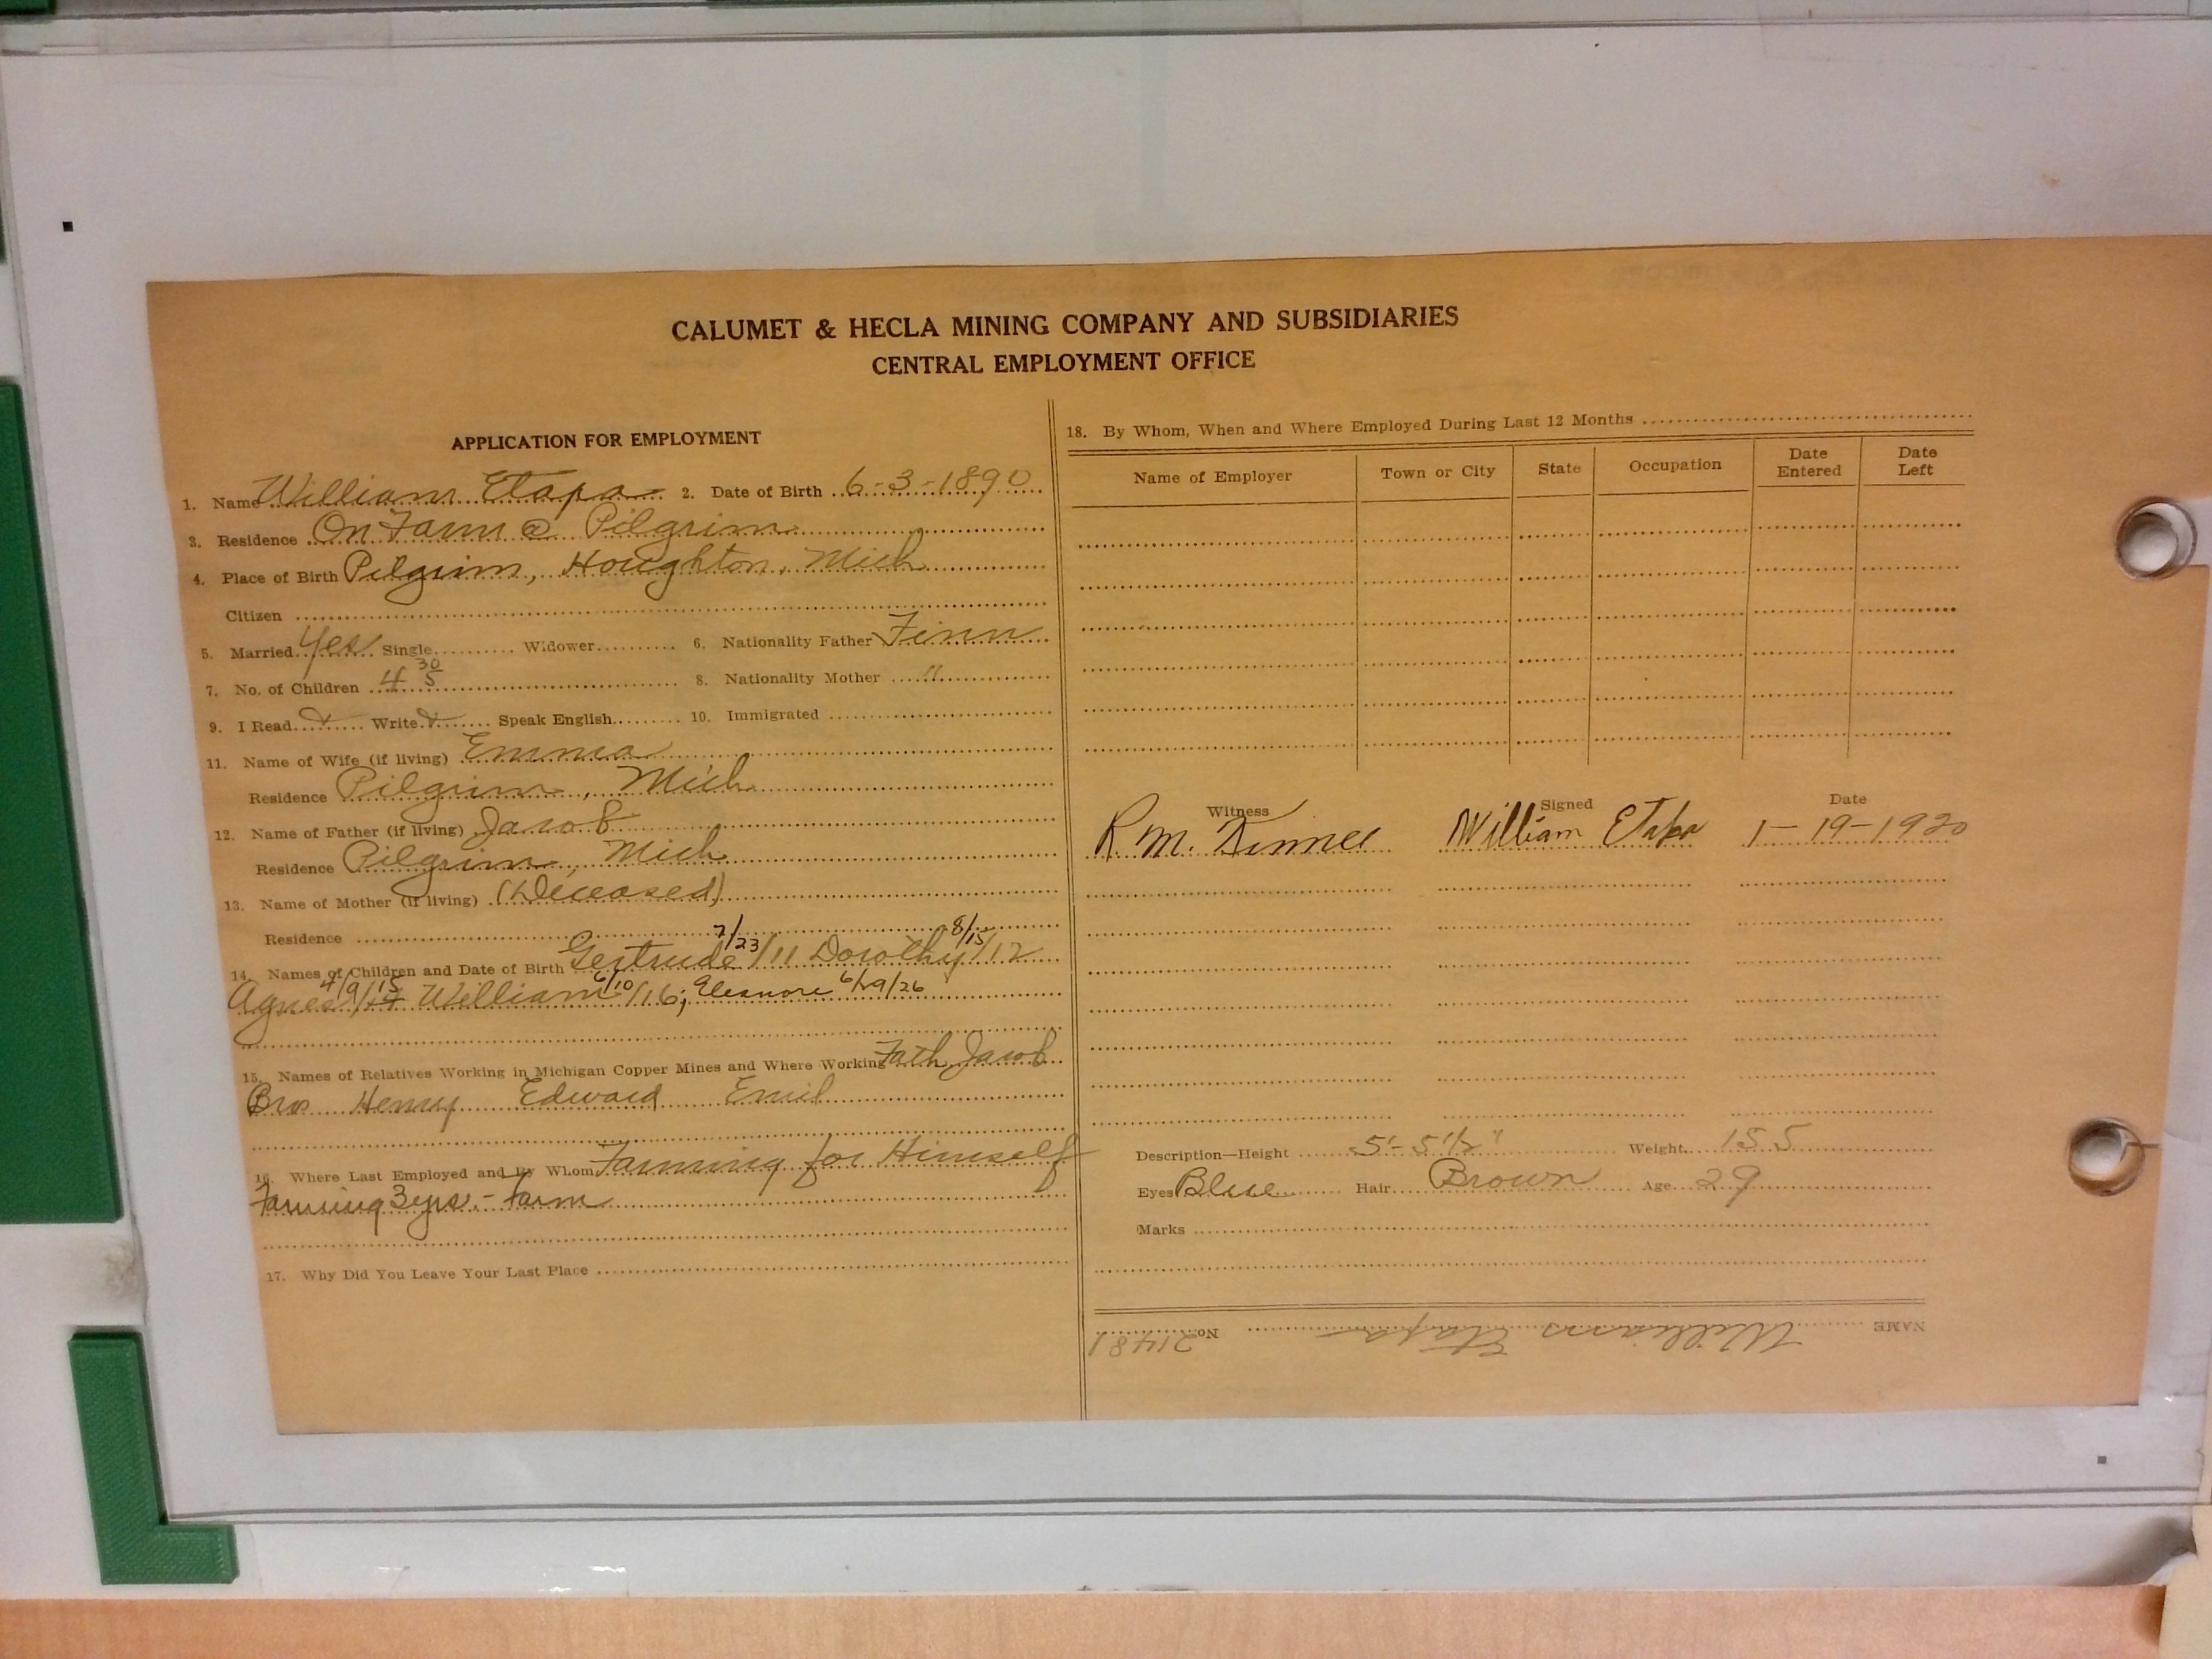 CALUMET & HECLA MINING COMPANY AND SUBSIDIARIES
CENTRAL EMPLOYMENT OFFICE
APPLICATION FOR EMPLOYMENT
1. Name William Etapa 2. Date of Birth 6-3-1890
3. Residence On Farm @ Pilgrim
4. Place of Birth Pilgrim, Houghton, Mich
Citizen
5. Married Yes Single Widower 6. Nationality Father Finn
7. No. of Children 4 30/5 8. Nationality Mother "
9. I Read Write Speak English 10. Immigrated
11. Name of Wife (if living) Emma
Residence Pilgrim, Mich
12. Name of Father (if living) Jacob
Residence Pilgrim, Mich
13. Name of Mother (if living) (Deceased)
Residence
14. Names of Children and Date of Birth Gertrude 7/23/11 Dorothy 8/15/12
Agnes 4/9/15 William 6/10/16; Eleanore 6/29/26
15. Names of Relatives Working in Michigan Copper Mines and Where Working Fath Jacob
Bros Henry Edward Emil
16. Where Last Employed and By Whom Farming for Himself
Farming 3 yrs. - Farm
17. Why Did You Leave Your Last Place
18. By Whom, When and Where Employed During Last 12 Months
Name of Employer Town or City State Occupation Date Entered Date Left
Witness Signed Date
R. M. William Etapa 1-19-1920
Description—Height 5'-5 1/2" Weight 155
Eyes Blue Hair Brown Age 29
Marks
NAME William Etapa No. 21481